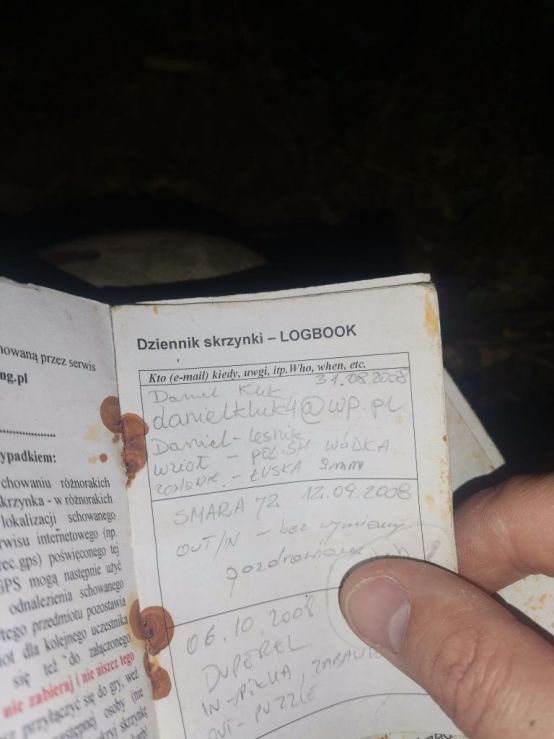 howaną przez serwis
ng.pl
ypadkiem:
chowaniu różnorakich
skrzynka - w różnorakich
lokalizacji schowanego
rwisu internetowego (np.
rec.gps) poświęconego tej
GPS mogą następnie użyć
odnalezienia schowanego
tego przedmiotu pozostawia
dla kolejnego uczestnika
się też do załączonego
nie zabieraj i nie niszcz tego
przyłączyć się do gry, weź
następnej osoby (nie
skrzynkę
Dziennik skrzynki – LOGBOOK
Kto (e-mail) kiedy, uwgi, itp.Who, when, etc.
Daniel Kluk 31.08.2008
danielkluk4@wp.pl
Daniel - leśnik
wziął - POLISH WÓDKA
ŁUSKA 9mm
SMARA 72 12.09.2008
OUT/IN - bez wymiany
pozdrawiam
06.10.2008
DUPEREL
IN - PIŁKA,
OUT - PUZZLE